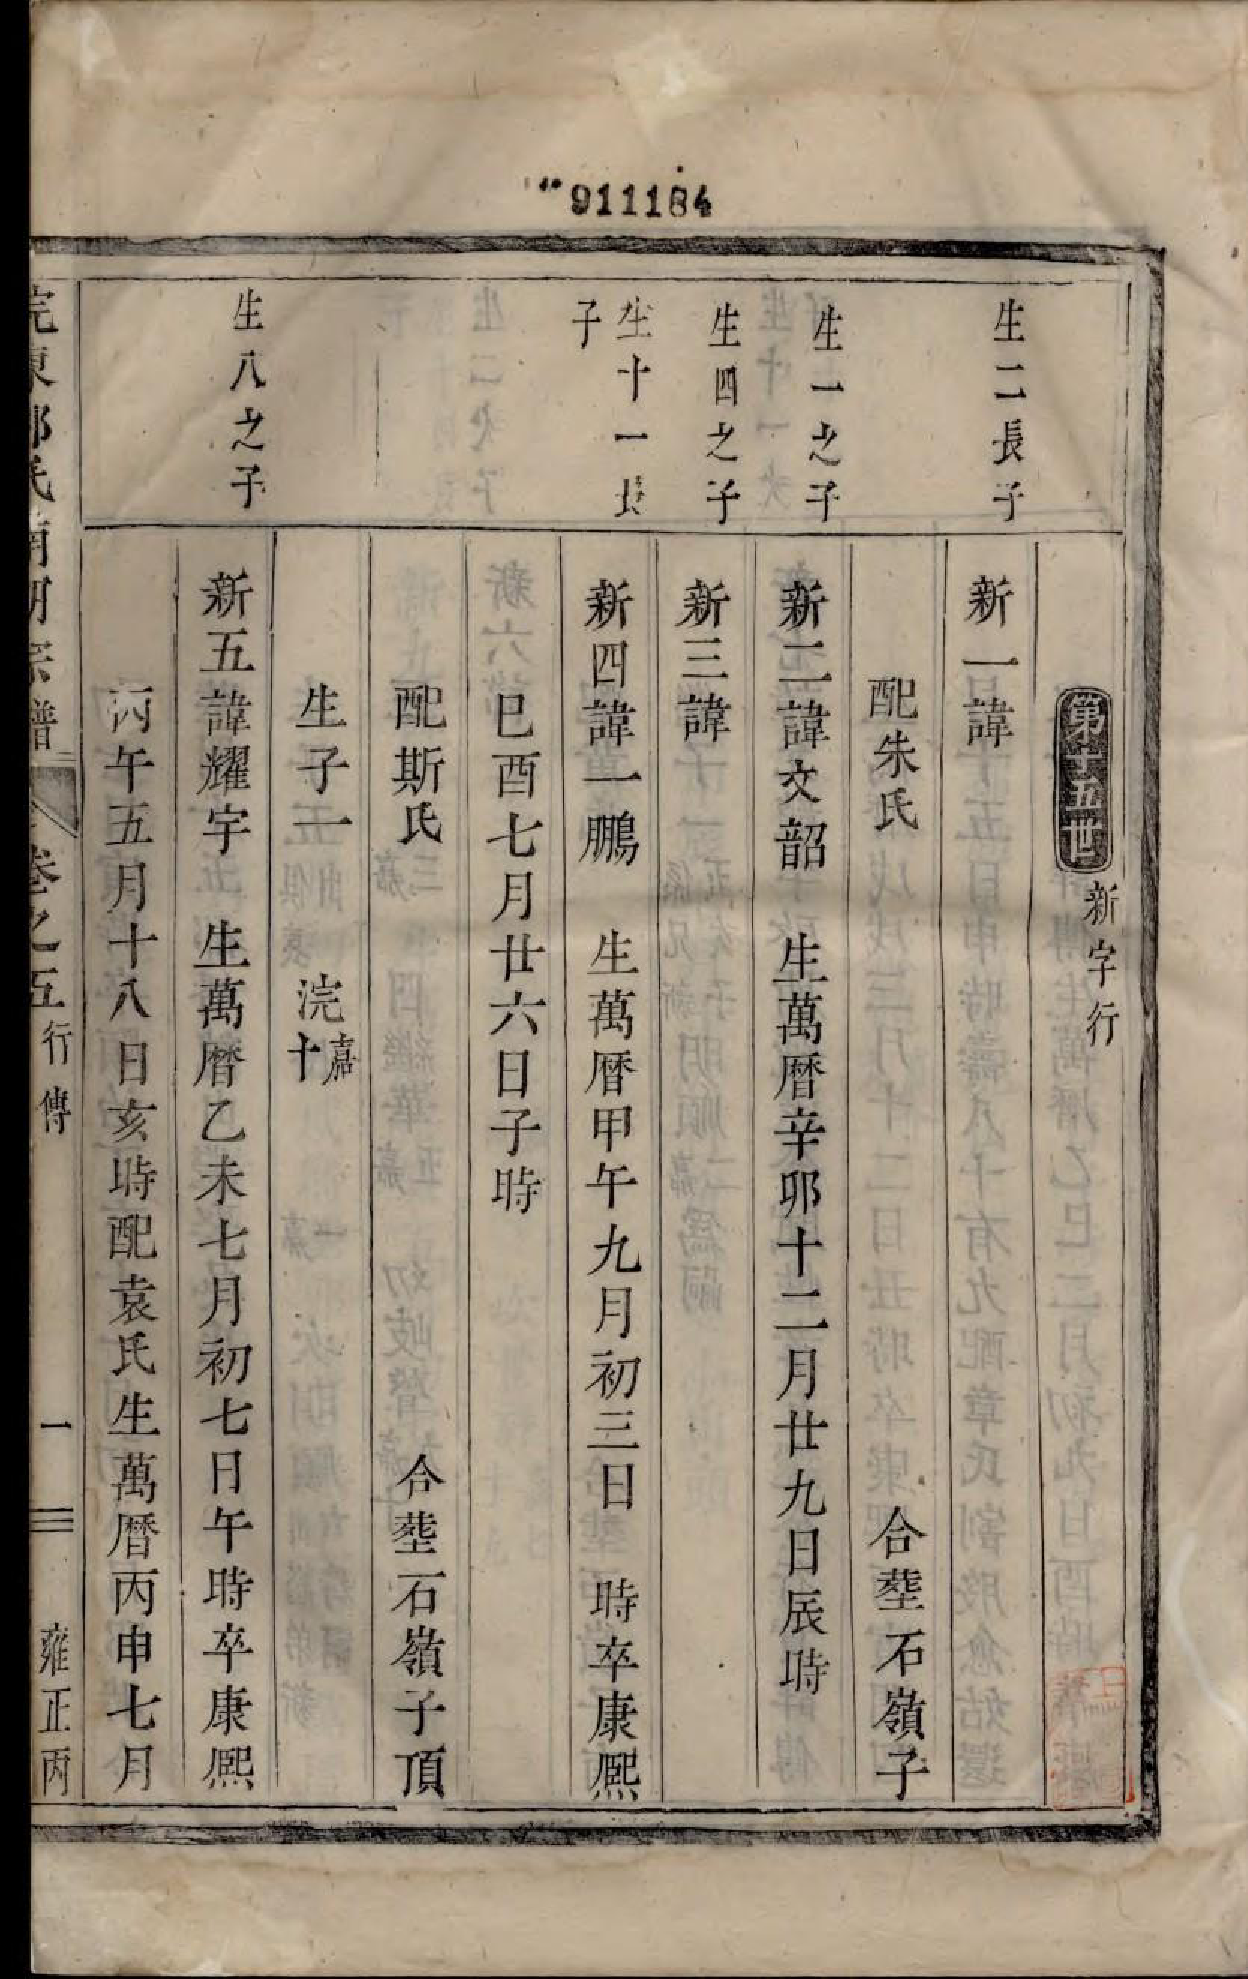 911184
第十五世 新字行
生二長子
新一諱
配朱氏 合塟石嶺子
生一之子
新二諱文韶 生萬曆辛卯十二月廿九日辰時
生四之子
新三諱
生十一長
子
新四諱一鵬 生萬曆甲午九月初三日 時卒康熙
巳酉七月廿六日子時
配斯氏 合塟石嶺子頂
生子一 浣嘉十
生八之子
新五諱耀宇 生萬曆乙未七月初七日午時卒康熙
丙午五月十八日亥時配袁氏生萬曆丙申七月
氏 宗譜 卷之五 行傳 一 雍正丙